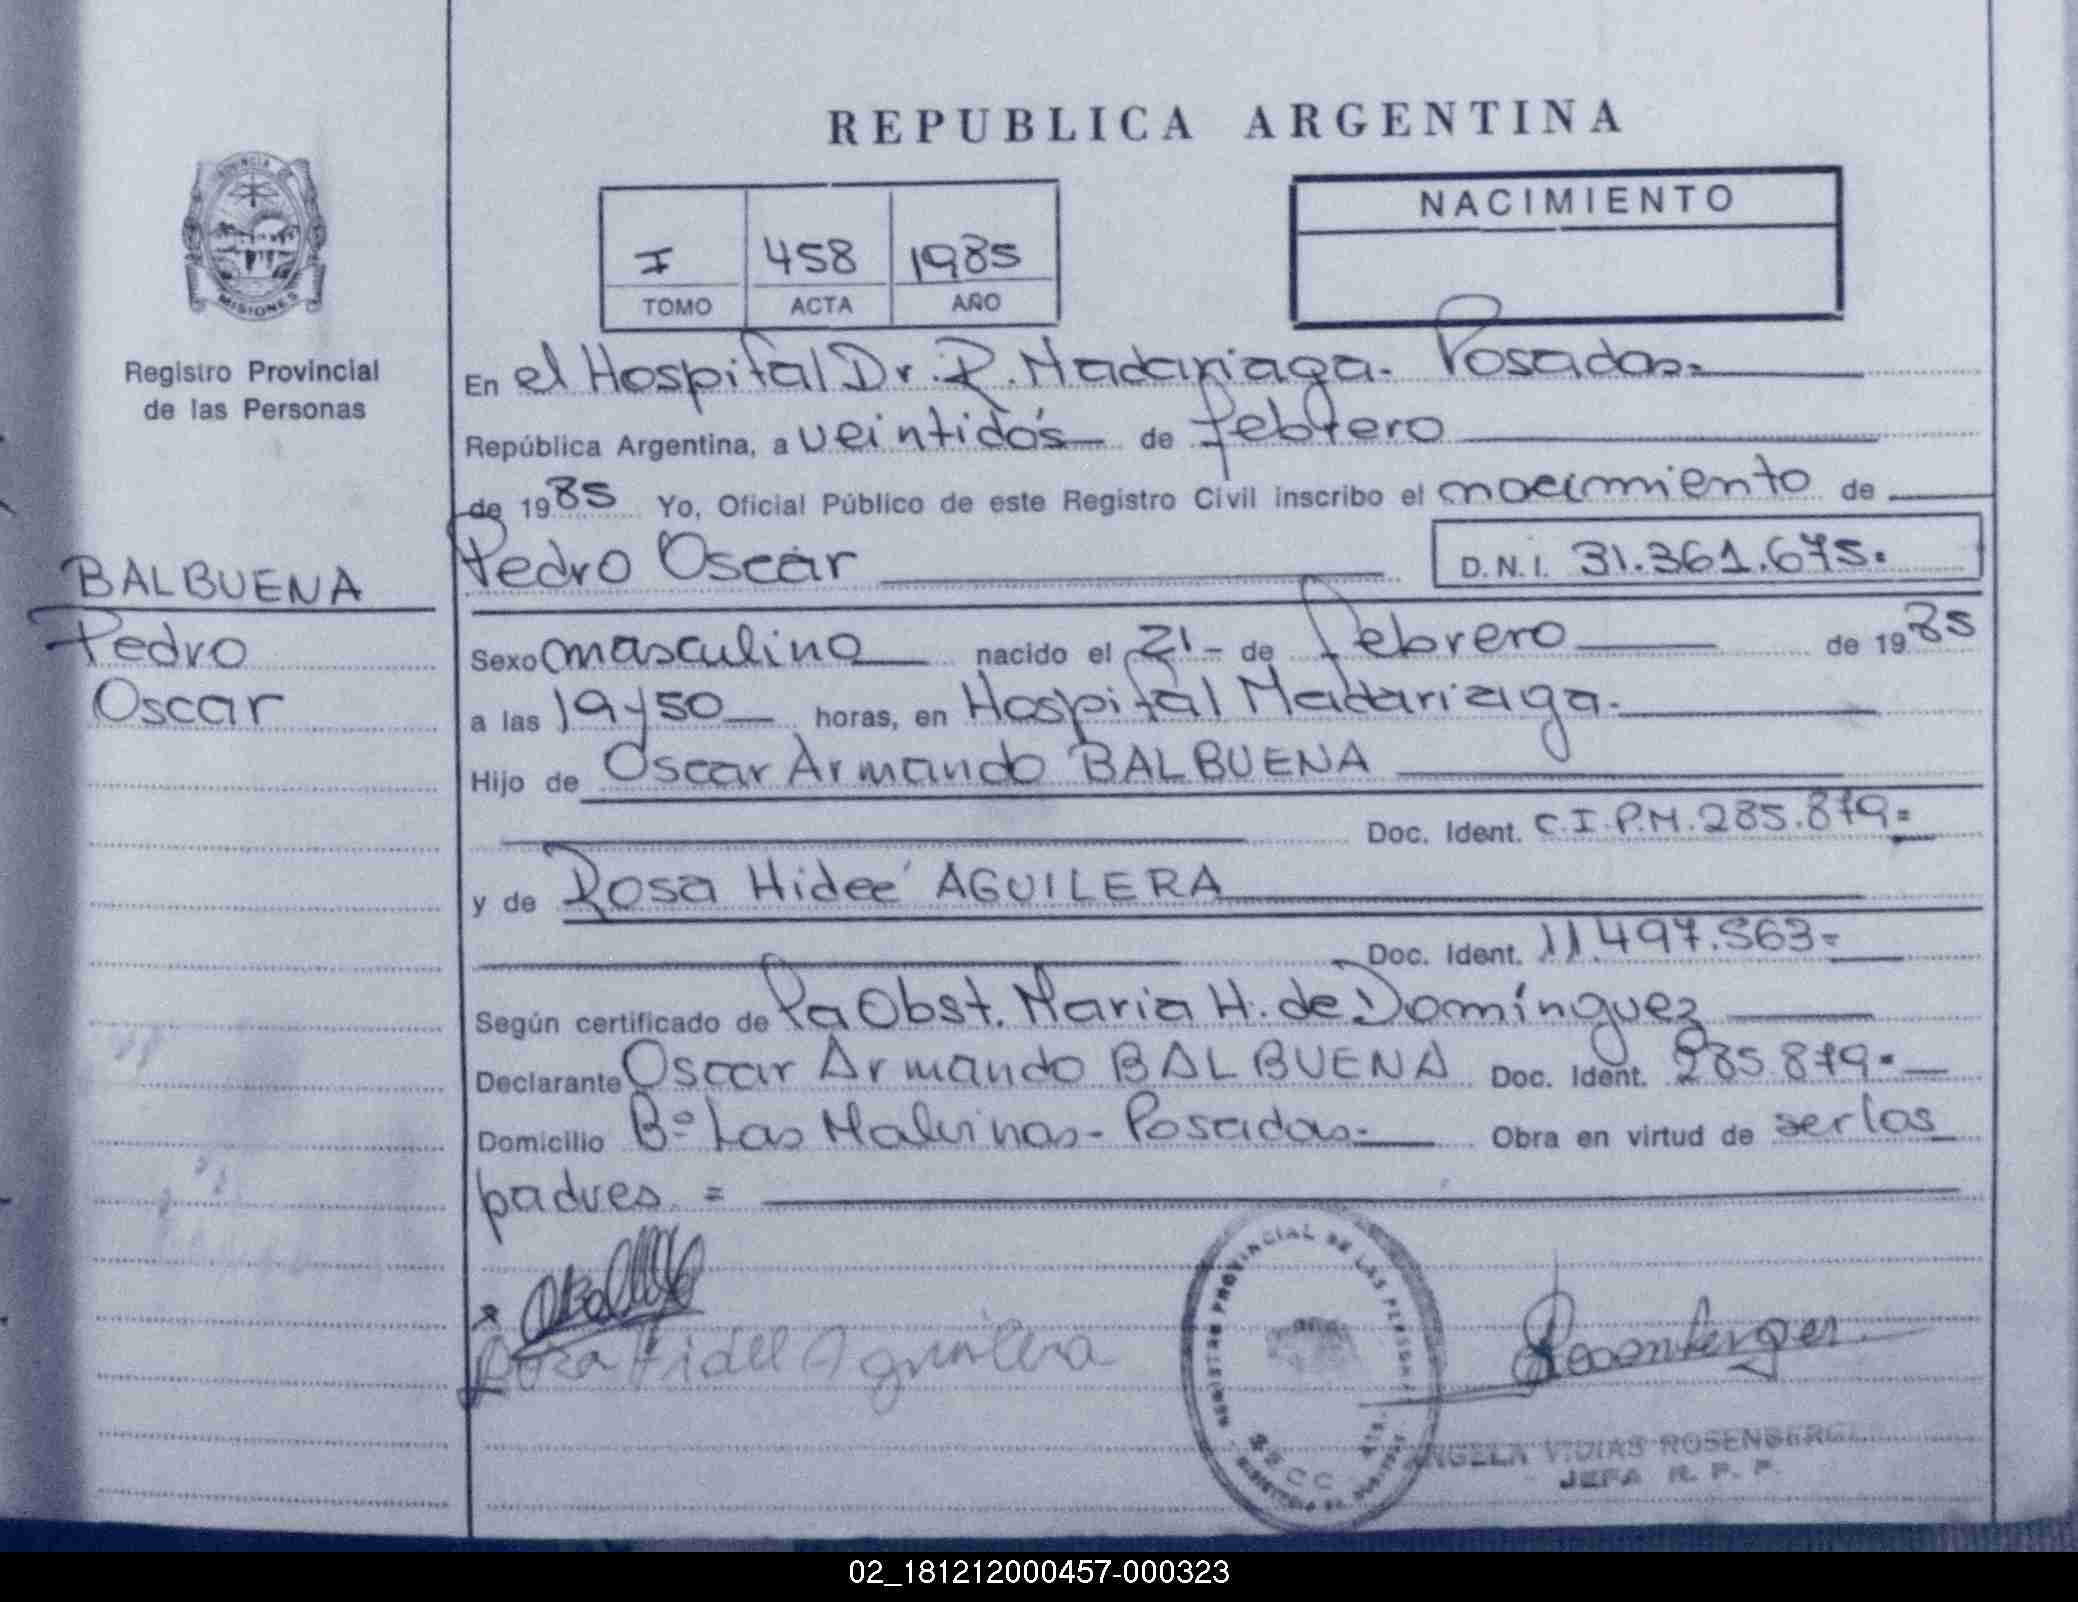 REPUBLICA ARGENTINA
PROVINCIA
MISIONES
Registro Provincial
de las Personas
I 458 1985
TOMO ACTA AÑO
NACIMIENTO
En el Hospital Dr. R. Madariaga. Posadas.
República Argentina, a veintidós de febrero
de 1985 Yo, Oficial Público de este Registro Civil inscribo el nacimiento de
Pedro Oscar D.N.I. 31.361.675.
BALBUENA
Pedro
Oscar
Sexo masculino nacido el 21- de febrero de 1985
a las 19y50 horas, en Hospital Madariaga.
Hijo de Oscar Armando BALBUENA
Doc. Ident. C.I.P.M. 285.879=
y de Rosa Hideé AGUILERA
Doc. Ident. 11.497.563=
Según certificado de Pa Obst. Maria H. de Domínguez
Declarante Oscar Armando BALBUENA Doc. Ident. 285.879.
Domicilio Bº Las Malvinas - Posadas - Obra en virtud de ser los
padres =
Rosa Hidee Aguilera
REGISTRO PROVINCIAL DE LAS PERSONAS
Rosenberger
ANGELA V. DIAS ROSENBERGER
JEFA R. P. P.
02_181212000457-000323